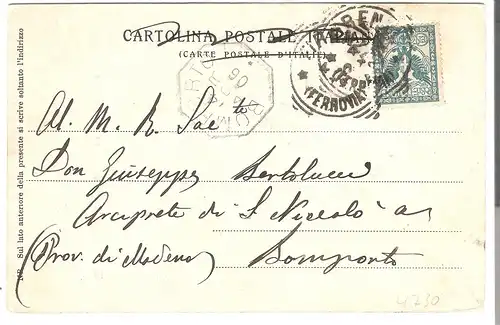 CARTOLINA POSTALE ITALIANA
(CARTE POSTALE D'ITALIE)
FIRENZE
(FERROVIA)
BOMPORTO
Al M. R. Sac
Don Giuseppe Bertolucci
Arciprete di S. Niccolò a
(Prov. di Modena) Bomporto
NB. Sul lato anteriore della presente si scrive soltanto l'indirizzo
4730